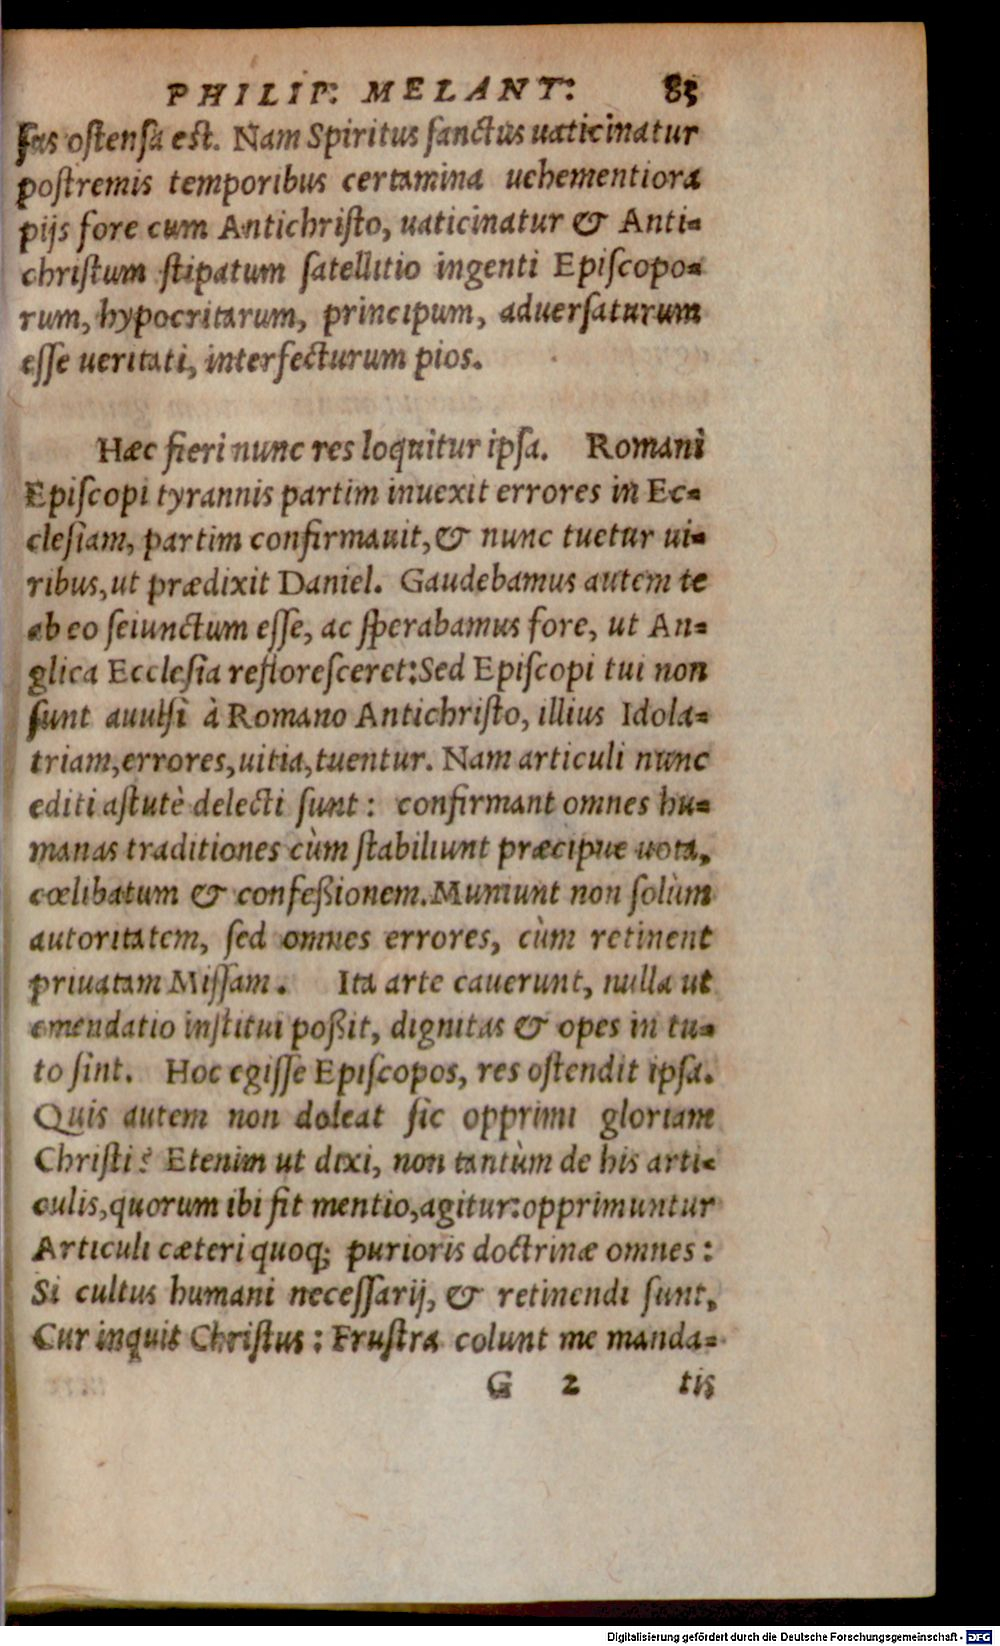 PHILIP: MELANT: 85
sus ostensa est. Nam Spiritus sanctus uaticinatur
postremis temporibus certamina uehementiora
pijs fore cum Antichristo, uaticinatur & Anti-
christum stipatum satellitio ingenti Episcopo-
rum, hypocritarum, principum, aduersaturum
esse ueritati, interfecturum pios.
Hæc fieri nunc res loquitur ipsa. Romani
Episcopi tyrannis partim inuexit errores in Ec-
clesiam, partim confirmauit, & nunc tuetur ui-
ribus, ut prædixit Daniel. Gaudebamus autem te
ab eo seiunctum esse, ac sperabamus fore, ut An-
glica Ecclesia refloresceret: Sed Episcopi tui non
sunt auulsi à Romano Antichristo, illius Idola-
triam, errores, uitia, tuentur. Nam articuli nunc
editi astutè delecti sunt: confirmant omnes hu-
manas traditiones cùm stabiliunt præcipue uota,
cœlibatum & confeßionem. Muniunt non solùm
autoritatem, sed omnes errores, cùm retinent
priuatam Missam. Ita arte cauerunt, nulla ut
emendatio institui poßit, dignitas & opes in tu-
to sint. Hoc egisse Episcopos, res ostendit ipsa.
Quis autem non doleat sic opprimi gloriam
Christi? Etenim ut dixi, non tantùm de his arti-
culis, quorum ibi fit mentio, agitur: opprimuntur
Articuli cæteri quoq; purioris doctrinæ omnes:
Si cultus humani necessarij, & retinendi sunt,
Cur inquit Christus: Frustra colunt me manda-
G 2 tis
Digitalisierung gefördert durch die Deutsche Forschungsgemeinschaft - DFG